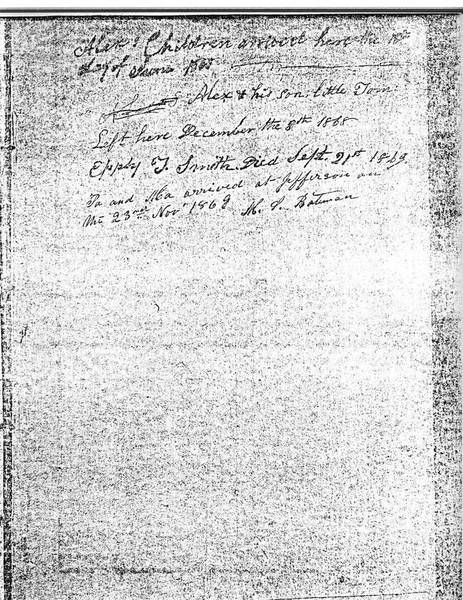 Alex's Children arrived here the
day of June 1868
Alex & his son little Tom
Left here December the 8th 1868
Epply T. Smith Died Sept. 21st 1869
Pa and Ma arrived at Jefferson on
the 23rd Nov 1869 M. S. Bateman